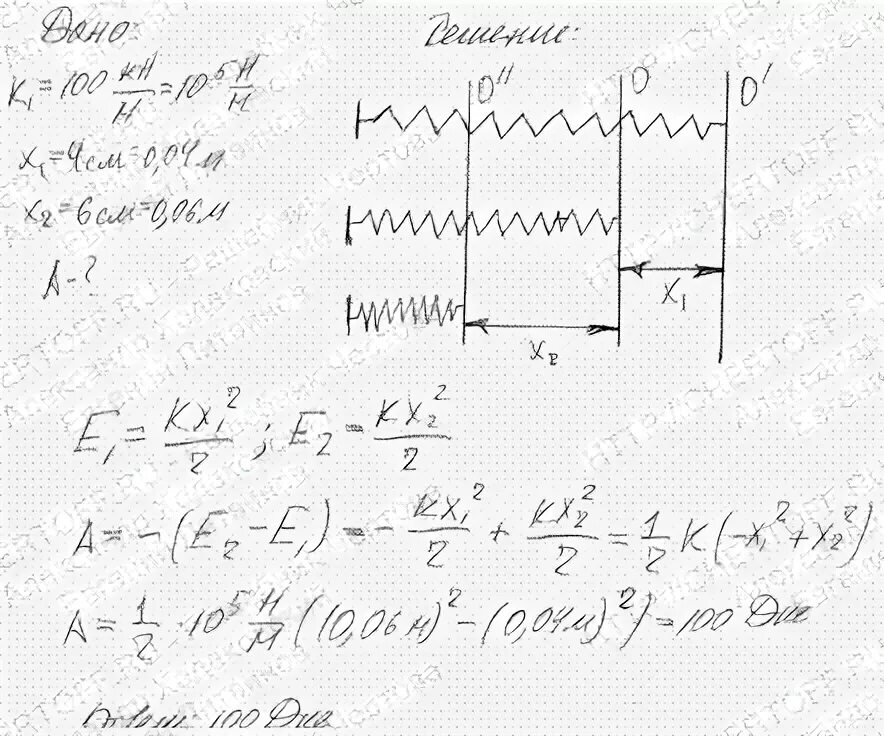 Дано:
Решение:
K₁ = 100 кН/м = 10⁵ Н/м
x₁ = 4 см = 0,04 м
x₂ = 6 см = 0,06 м
A - ?
O'' O O'
x₁
x₂
E₁ = Kx₁²/2 ; E₂ = Kx₂²/2
A = -(E₂ - E₁) = - Kx₁²/2 + Kx₂²/2 = 1/2 K(-x₁² + x₂²)
A = 1/2 · 10⁵ Н/м ((0,06 м)² - (0,04 м)²) = 100 Дж
Ответ: 100 Дж